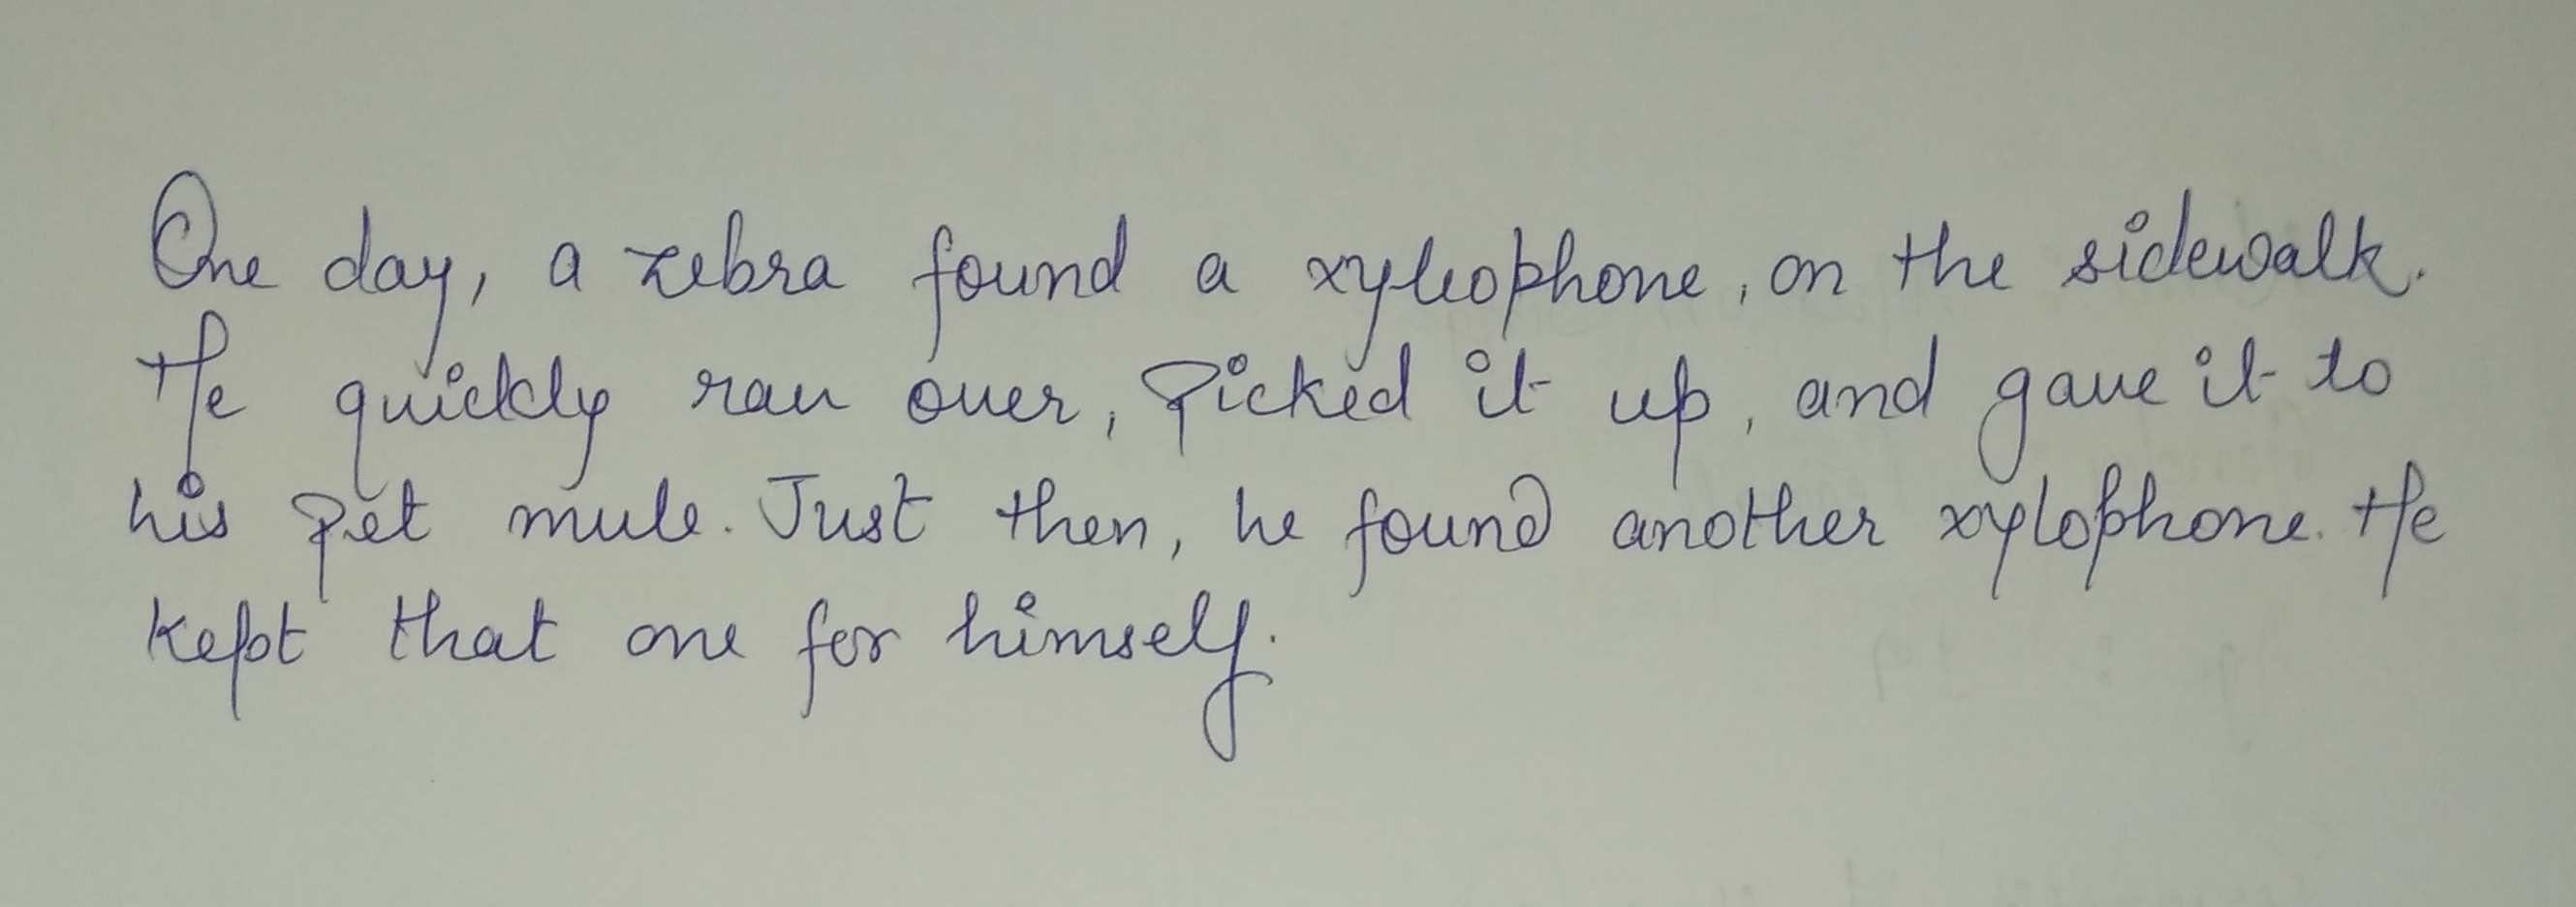 One day, a zebra found a xyleophone, on the sidewalk.
He quickly ran over, picked it up, and gave it to
his pet mule. Just then, he found another xylophone. He
kept that one for himself.